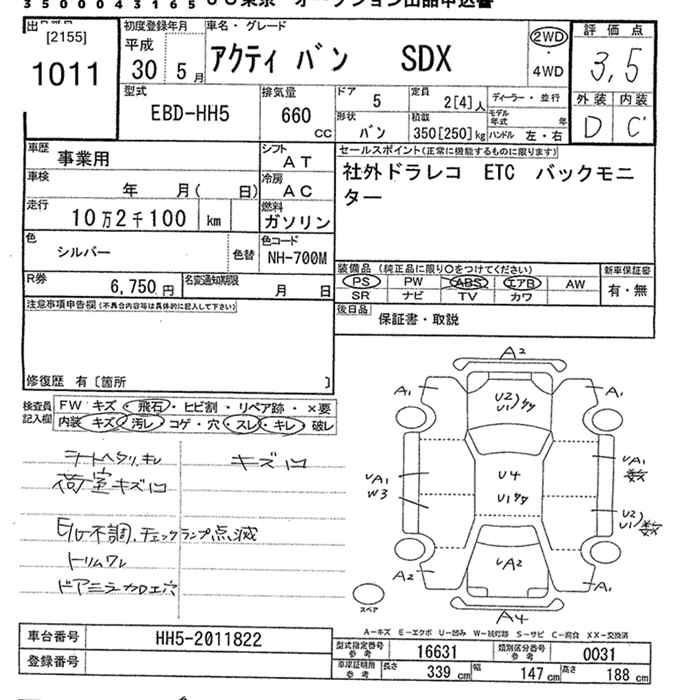 3500043165 JU東京 オークション出品申込書
[2155]
1011
初度登録年月
平成
30 5月
車名・グレード
アクティ バン SDX
2WD
・
4WD
評価点
3,5
外装 内装
D C
型式
EBD-HH5
排気量
660
CC
ドア
5
定員
2[4]人
ディーラー・並行
形状
バン
積載
350[250]kg
モデル年式 年
ハンドル 左・右
車歴
事業用
シフト
AT
車検
年 月( 日)
冷房
AC
走行
10万2千100 km
燃料
ガソリン
色
シルバー
色替
色コード
NH-700M
R券
6,750円
名変通知期限
月 日
セールスポイント(正常に機能するものに限ります)
社外ドラレコ ETC バックモニ
ター
装備品 (純正品に限り○をつけてください)
PS PW ABS エアB AW
SR ナビ TV カワ
新車保証書
有・無
後日品
保証書・取説
注意事項申告欄(不具合内容等は具体的に記入して下さい)
修復歴 有〔箇所 〕
検査員
記入欄
FW キズ・飛石・ヒビ割・リペア跡・×要
内装 キズ・汚レ・コゲ・穴・スレ・キレ・破レ
シートヘタリ、キレ
キズ凹
荷室キズ凹
E/G不調、チェックランプ点滅
トリムワレ
ドアミラーカロエ穴
A2
A1
A1
U2
U1
クケ
UA1
W3
UA1
数
U4
U1クケ
U2
U1
数
A2
UA2
A1
A4
スペア
A-キズ E-エクボ U-凹み W-補修跡 S-サビ C-腐食 XX-交換済
車台番号
HH5-2011822
登録番号
型式指定番号
参考
16631
類別区分番号
参考
0031
車庫証明用
参考
長さ 339 cm 幅 147 cm 高さ 188 cm